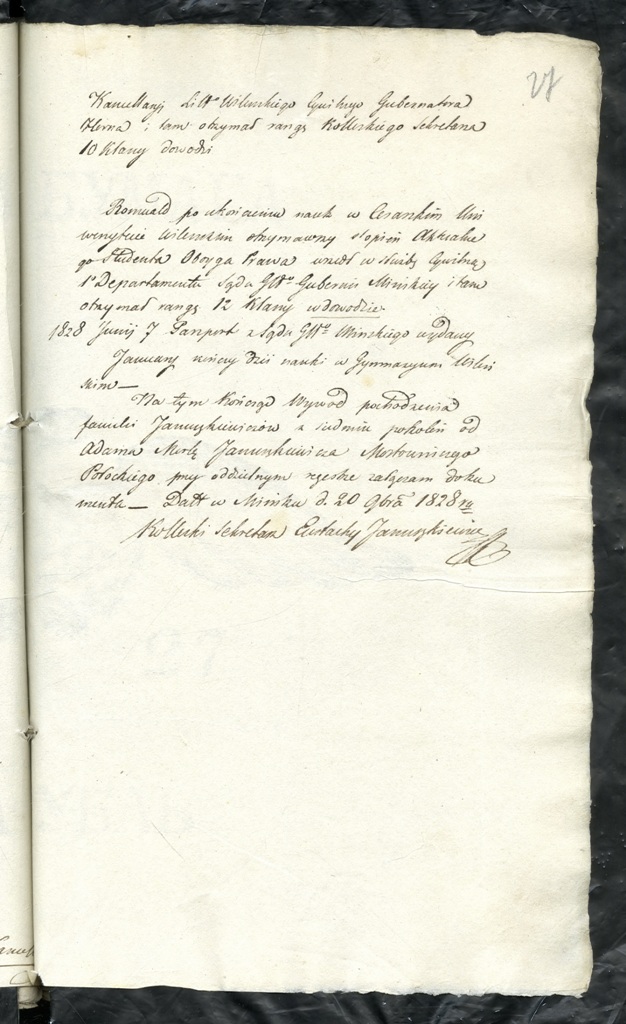 27
Kancellaryi Litt° Wilenskiego Cywilnego Gubernatora
Horna i tam otrzymał rangę Kolleskiego Sekretarza
10 Klassy dowodzi
Romuald po ukończeniu nauk w Cesarskim Uni
wersytecie Wilenskim otrzymawszy stopień Aktualne
go Studenta Oboyga Prawa wszedł w służbę Cywilną
1° Departamentu Sądu Głł° Gubernii Minskiey i tam
otrzymał rangę 12 Klassy w dowodzie
1828 Junij 7 Paszport z Sądu Głł° Minskiego wydany
Januszy uczący dziś nauki w Gymnazyum Wileń
skim —
Na tym Kończąc Wywód pochodzenia
familii Januszkiewiczów z siedmiu pokoleń od
Adama Januszkiewicza Mostowniczego
Połockiego przy oddzielnym regestrze załączam doku
menta — Datt w Minsku d. 20 9bra 1828 ru
Kolleski Sekretarz Eustachy Januszkiewicz